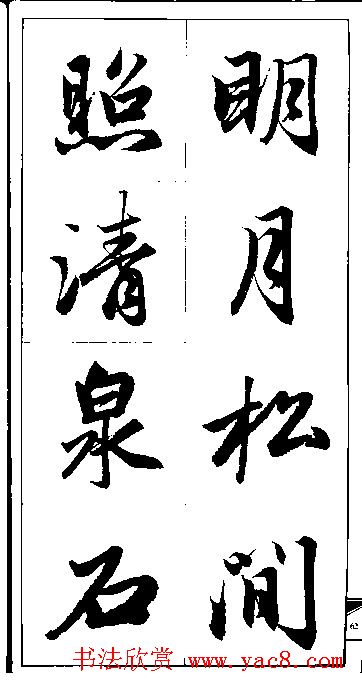 明月松间
照清泉石
62
书法欣赏 www.yac8.com